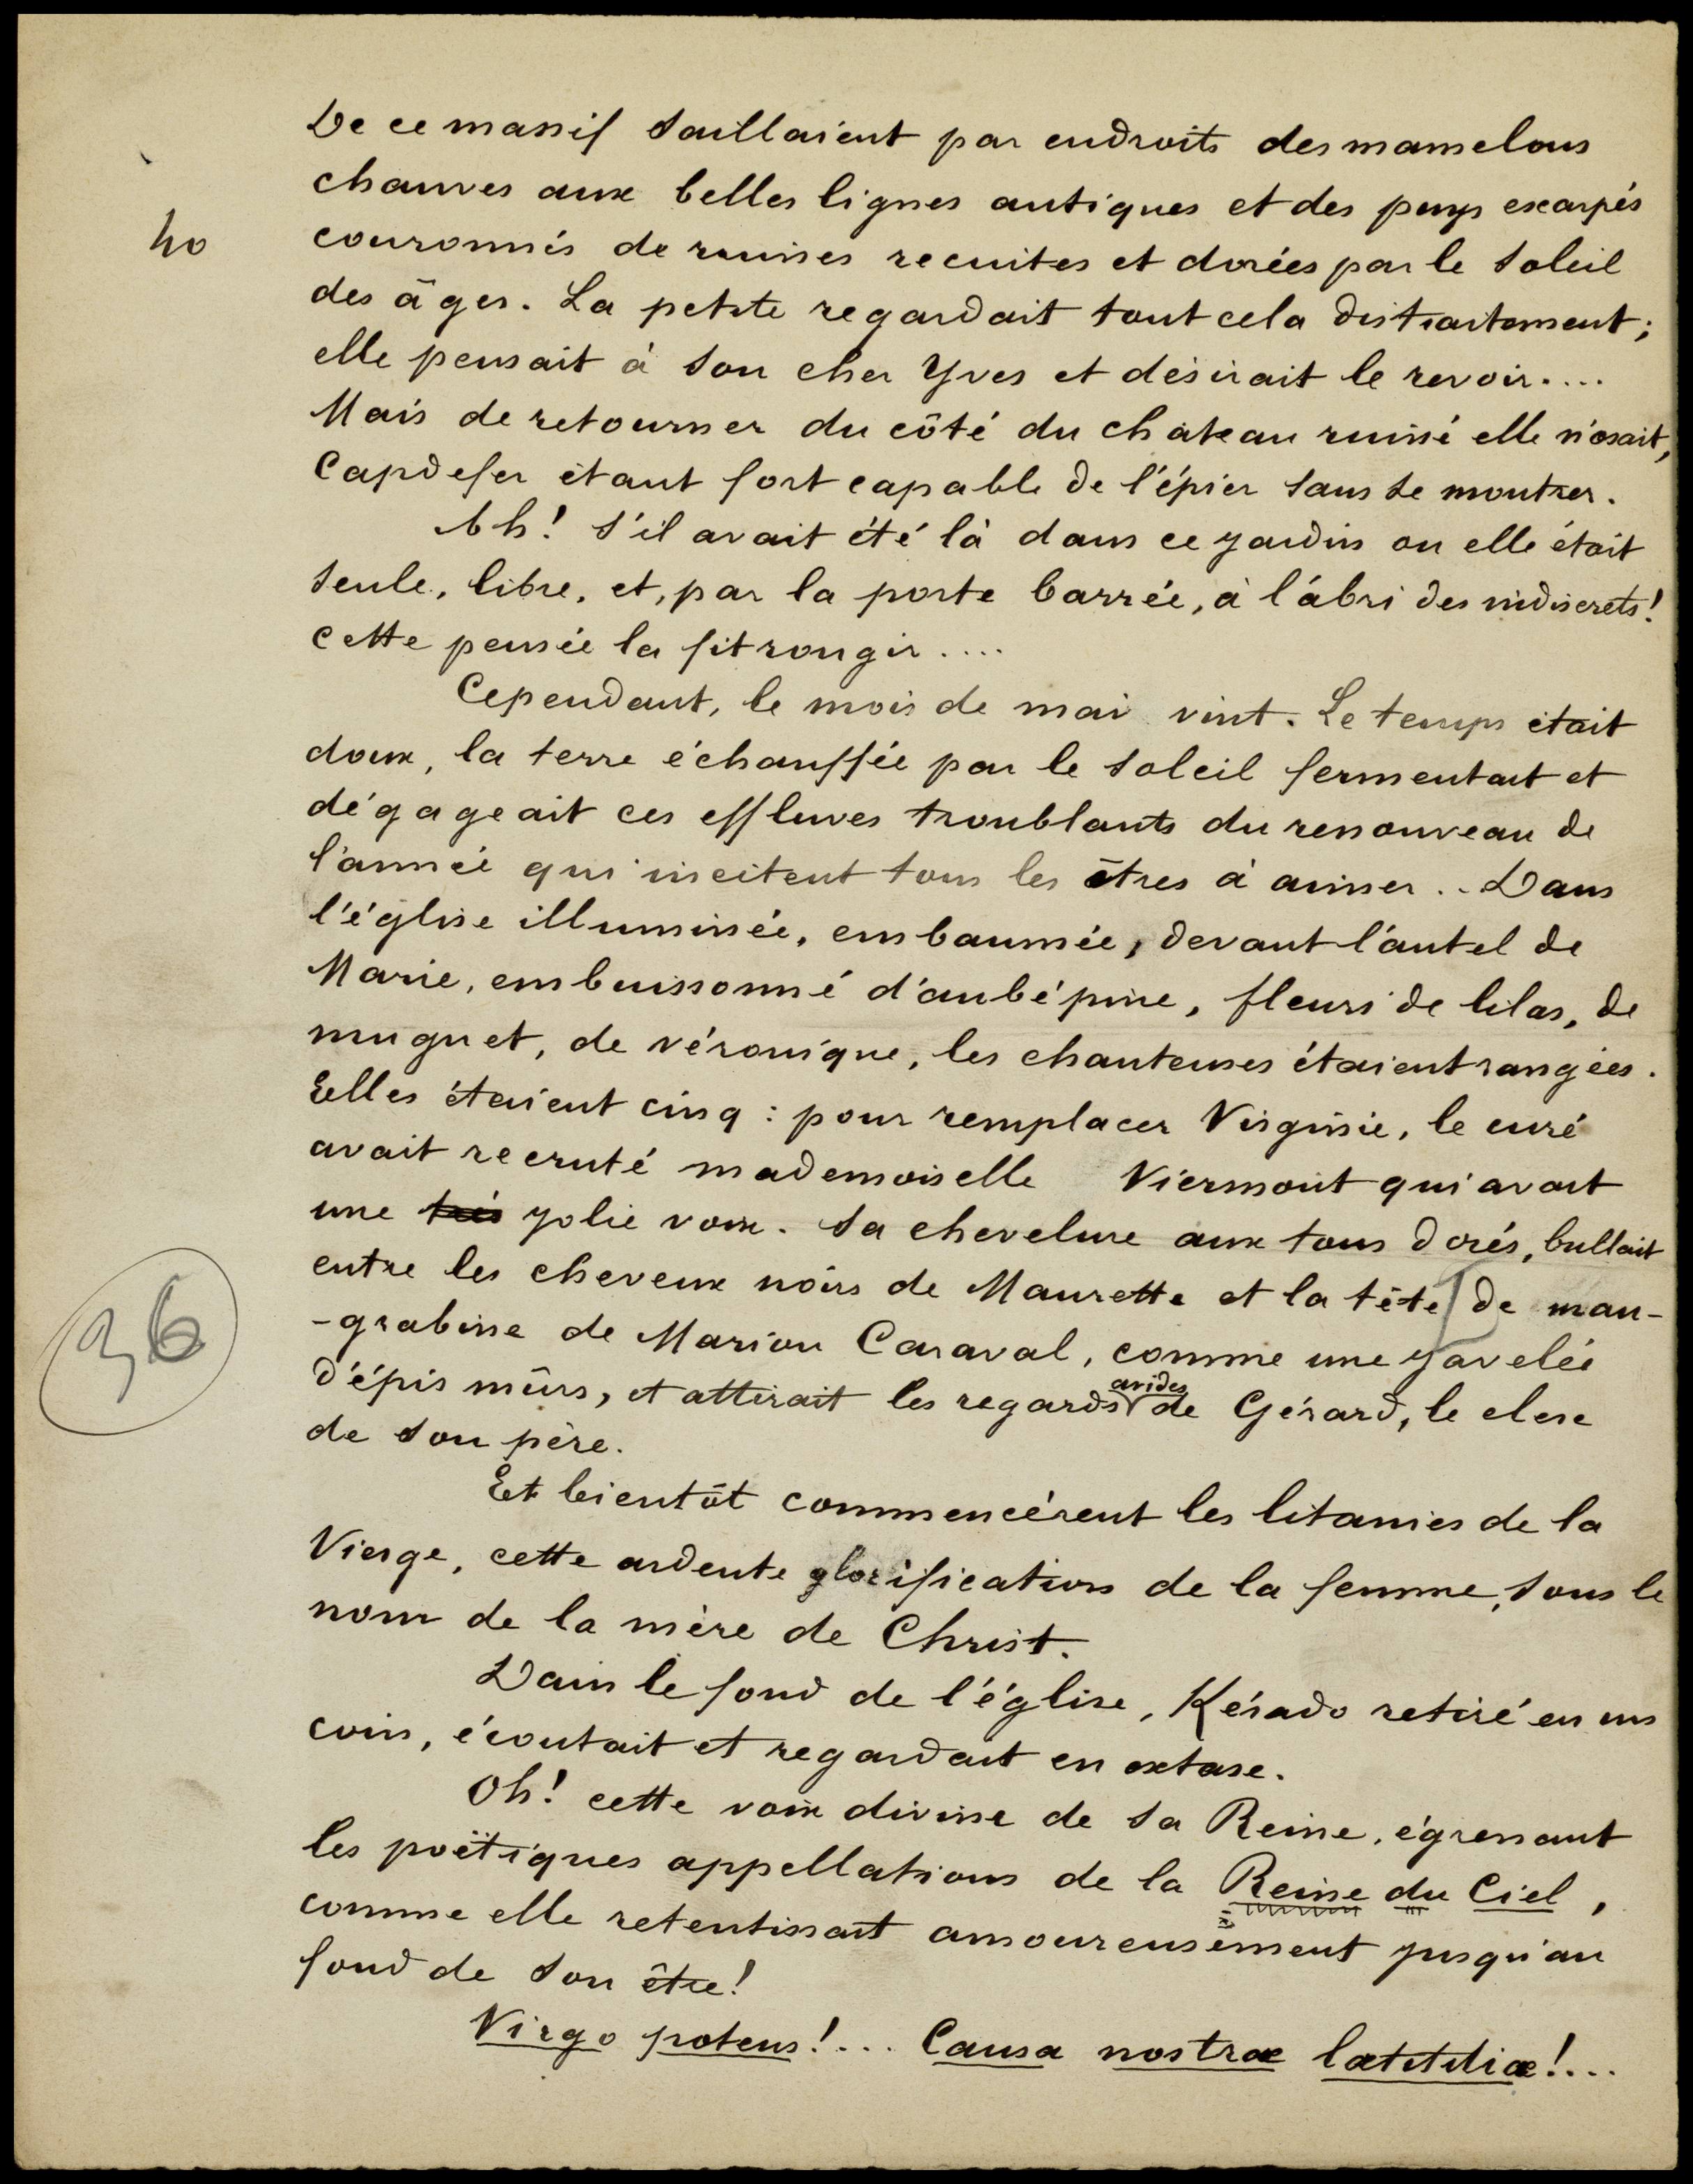 De ce massif saillaient par endroits des mamelons
chauves aux belles lignes antiques et des puys escarpés
40
couronnés de ruines recuites et dorées par le soleil
des âges. La petite regardait tout cela distraitement;
elle pensait à son cher Yves et désirait le revoir....
Mais de retourner du côté du château ruiné elle n'osait,
Capdefer étant fort capable de l'épier sans se montrer.
Ah! s'il avait été là dans ce jardin ou elle était
seule, libre, et, par la porte barrée, à l'abri des indiscrets!
Cette pensée la fit rougir....
Cependant, le mois de mai vint. Le temps était
doux, la terre échauffée par le soleil fermentait et
dégageait ces effluves troublants du renouveau de
l'année qui incitent tous les êtres à aimer.. Dans
l'église illuminée, embaumée, devant l'autel de
Marie, embuissonné d'aubépine, fleuri de lilas, de
muguet, de véronique, les chanteuses étaient rangées.
Elles étaient cinq : pour remplacer Virginie, le curé
avait recruté mademoiselle Viermont qui avait
une très jolie voix. Sa chevelure aux tons dorés, brillait
entre les cheveux noirs de Maurette et la tête [de mau-
-grabine de Marion Caraval, comme une javelée
36
d'épis mûrs, et attirait les regards avides de Gérard, le clerc
de son père.
Et bientôt commencèrent les litanies de la
Vierge, cette ardente glorification de la femme, sous le
nom de la mère de Christ.
Dans le fond de l'église, Kérado retiré en un
coin, écoutait et regardait en extase.
Oh! cette voix divine de sa Reine, égrenant
les poëtiques appellations de la Reine du Ciel,
comme elle retentissait amoureusement jusqu'au
fond de son être!
Virgo potens!... Causa nostræ lætitiæ!...